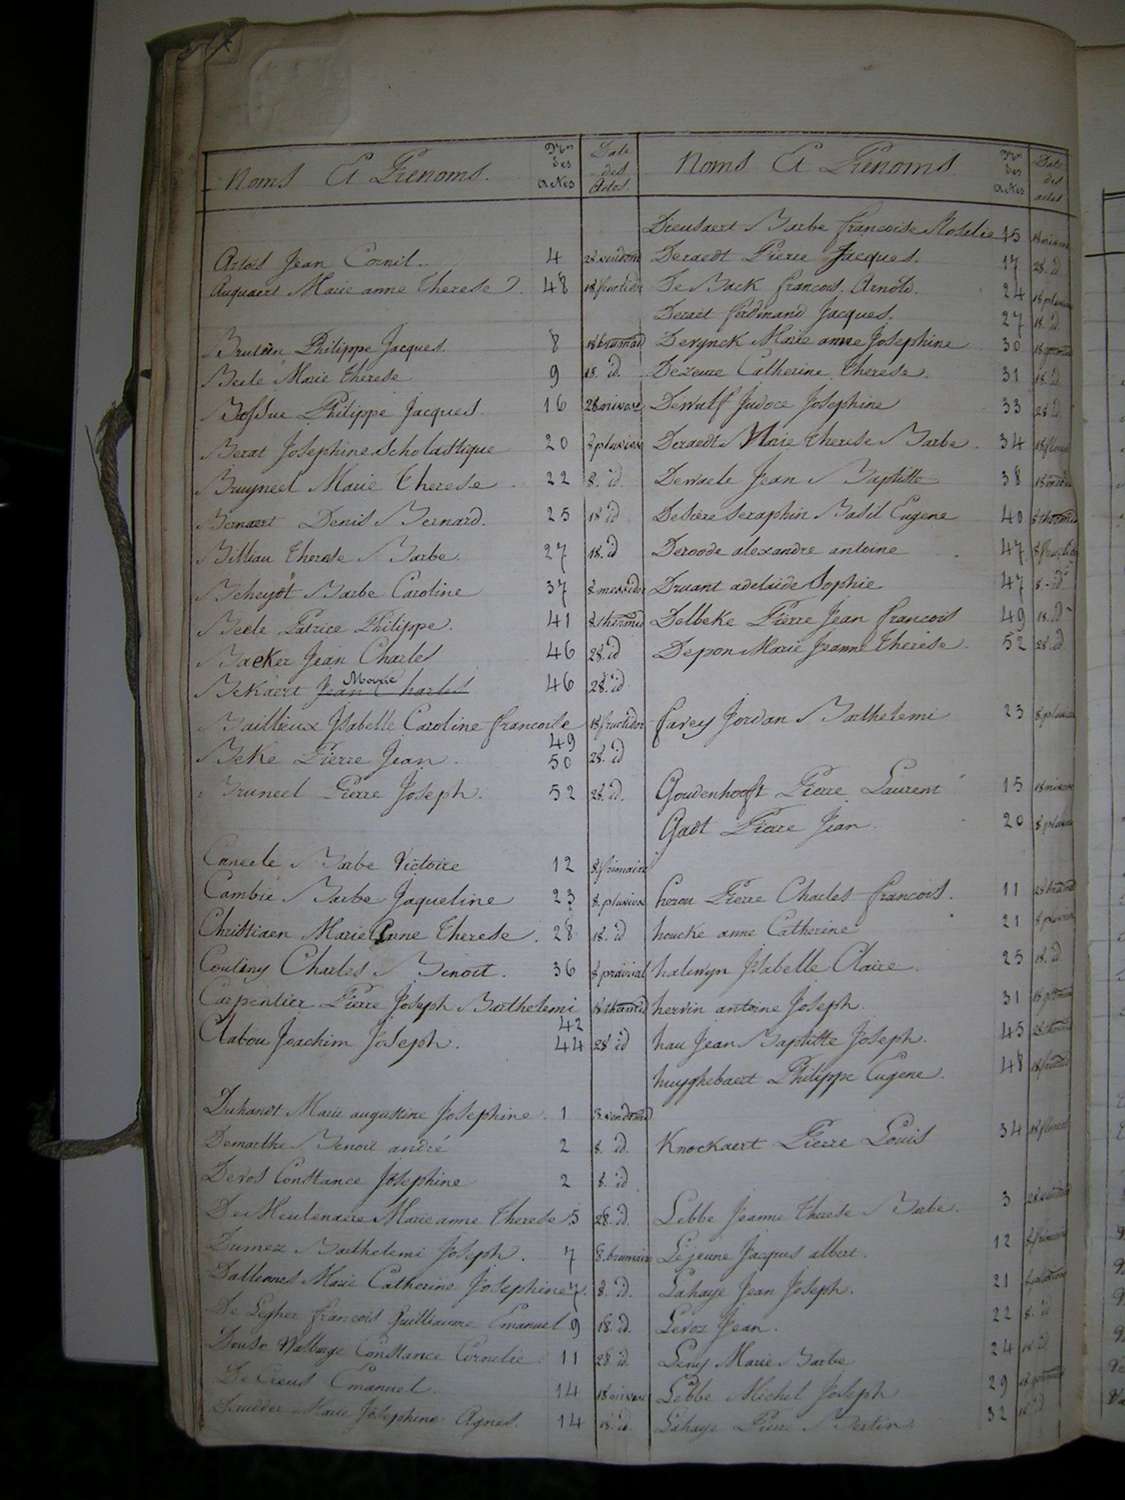 Noms Et Prenoms. Nos des Actes Date des Actes.
Artois Jean Cornil. 4 28 vendém
Auquaert Marie anne Therese 48 18 fructidor
Brutin Philippe Jacques 8 18 brumair
Beele Marie therese 9 18. id.
Bossue Philippe Jacques 16 28 nivose
Berat Josephine Scholastique 20 8 pluviose
Bruyneel Marie Therese 22 8. id
Bernaert Denis Bernard. 25 18 id
Billiau therese Barbe 27 18. id
Beheydt Barbe Caroline 37 8 messidor
Beele Patrice Philippe. 41 8 thermid
Backer Jean Charles 46 28. id
Bekaert Jean Charles Marie 46 28. id
Baillieux Isabelle Caroline francoise 49 18 fructidor
Beke Pierre Jean. 50 28. id
Bruneel Pierre Joseph. 52 28. id.
Caneele Barbe Victoire 12 8 frimaire
Cambie Barbe Jaqueline 23 8 pluviose
Christiaen Marie Anne Therese. 28 18. id
Couleny Charles Benoit. 36 8 prairial
Carpentier Pierre Joseph Barthelemi 42 18 thermid
Clabou Joachim Joseph. 44 28 id
Duhandt Marie augustine Josephine. 1 8 vendemid
Demarthe Benoit andré 2 8. id.
Devos Constance Josephine 2 8. id
De Meulenaere Marie anne Therese 5 28. id.
Dumez Barthelemi Joseph. 7 8. brumair
Dalleines Marie Catherine Josephine 7. 8. id.
De Legher francois Guilliaume Emanuel 9 18. id.
Walburge Constance Cornelie. 11 28. id.
De Creus Emanuel. 14 18 nivose
Marie Josephine Agnes. 14 18. id.
Noms Et Prenoms Nos des Actes Date des actes
Dieusaert Barbe francoise Rosalie 15 18 nivose
Deraedt Pierre Jacques. 17 28. id
De Back francois Arnold. 24 18 pluviose
Deraet ferdinand Jacques. 27 18. id
Derynck Marie anne Josephine 30 18 germinal
Dezeure Catherine Therese. 31 18. id
Dewulf Judoce Josephine 33 28 id
Deraedt Marie Therese Barbe. 34 18 floreal
Dewaele Jean Baptiste 38 18 messid
Desiere Seraphin Basil Eugene 40 8 thermid
Deroode alexandre antoine. 47 8 fructidor
Druant adelaide Sophie 47 8. id
Delbeke Pierre Jean francois 49 18. id
Depon Marie Jeanne Therese. 52 28. id
farey Jordan Barthelemi 23 8 pluviose
Goudenhooft Pierre Laurent 15 18 nivose
Gadt Pierre Jean. 20 8 pluviose
herou Pierre Charles francois. 11 28 brumd
houcke anne Catherine 21 8 pluviose
halewyn Isabelle Claire. 25 18. id
hervin antoine Joseph. 31 18 germinal
hau Jean Baptiste Joseph. 45 28 thermid
huyghebaert Philippe Eugene. 48 18 fructid
Knockaert Pierre Louis 34 18 floreal
Lebbe Jeanne Therese Barbe. 3 28 vendém
Lejeune Jacques albert. 12 8 frimaire
Lahaye Jean Joseph. 21 8 pluviose
Leroz Jean. 22 8. id
Leny Marie Barbe 24 18 id
Lebbe Michel Joseph 29 18 germinal
Lahaye Pierre Bertin 32 18 id